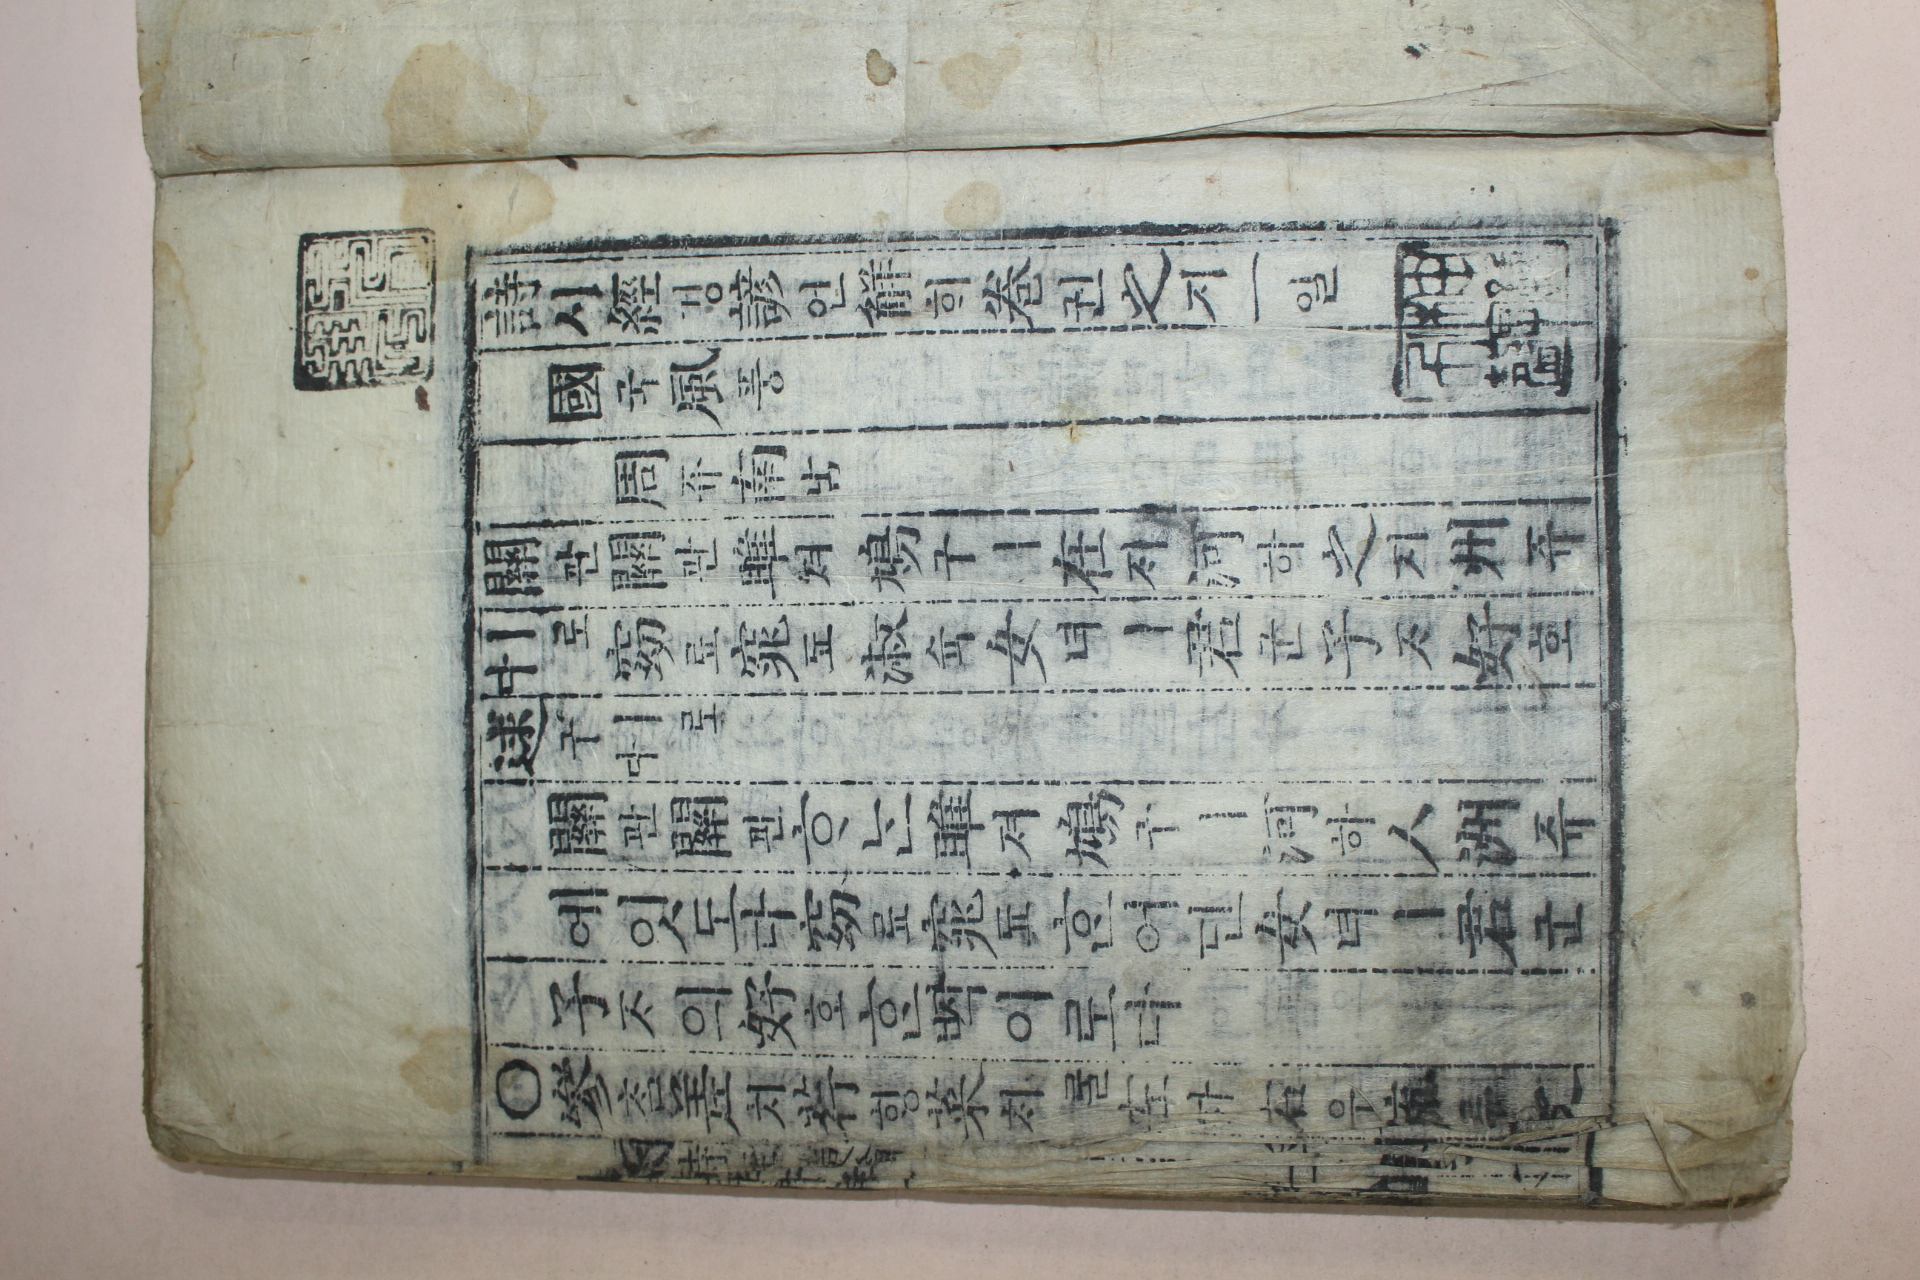 詩시經경諺언解ᄒᆡ卷권之지一일
國국風풍
周쥬南남
關관關관雎져鳩구ㅣ在ᄌᆡ河하之지洲쥬
ㅣ로다窈요窕됴淑슉女녀ㅣ君군子ᄌᆞ好호
逑구ㅣ로다
關관關관ᄒᆞᄂᆞᆫ雎져鳩구ㅣ河하ㅅ洲쥬
에잇도다窈요窕됴ᄒᆞᆫ어딘女녀ㅣ君군
子ᄌᆞ의好호ᄒᆞᆫᄧᅡᆨ이로다
○參츰差치荇ᄒᆡᆼ菜ᄎᆡ를左자右우流류之